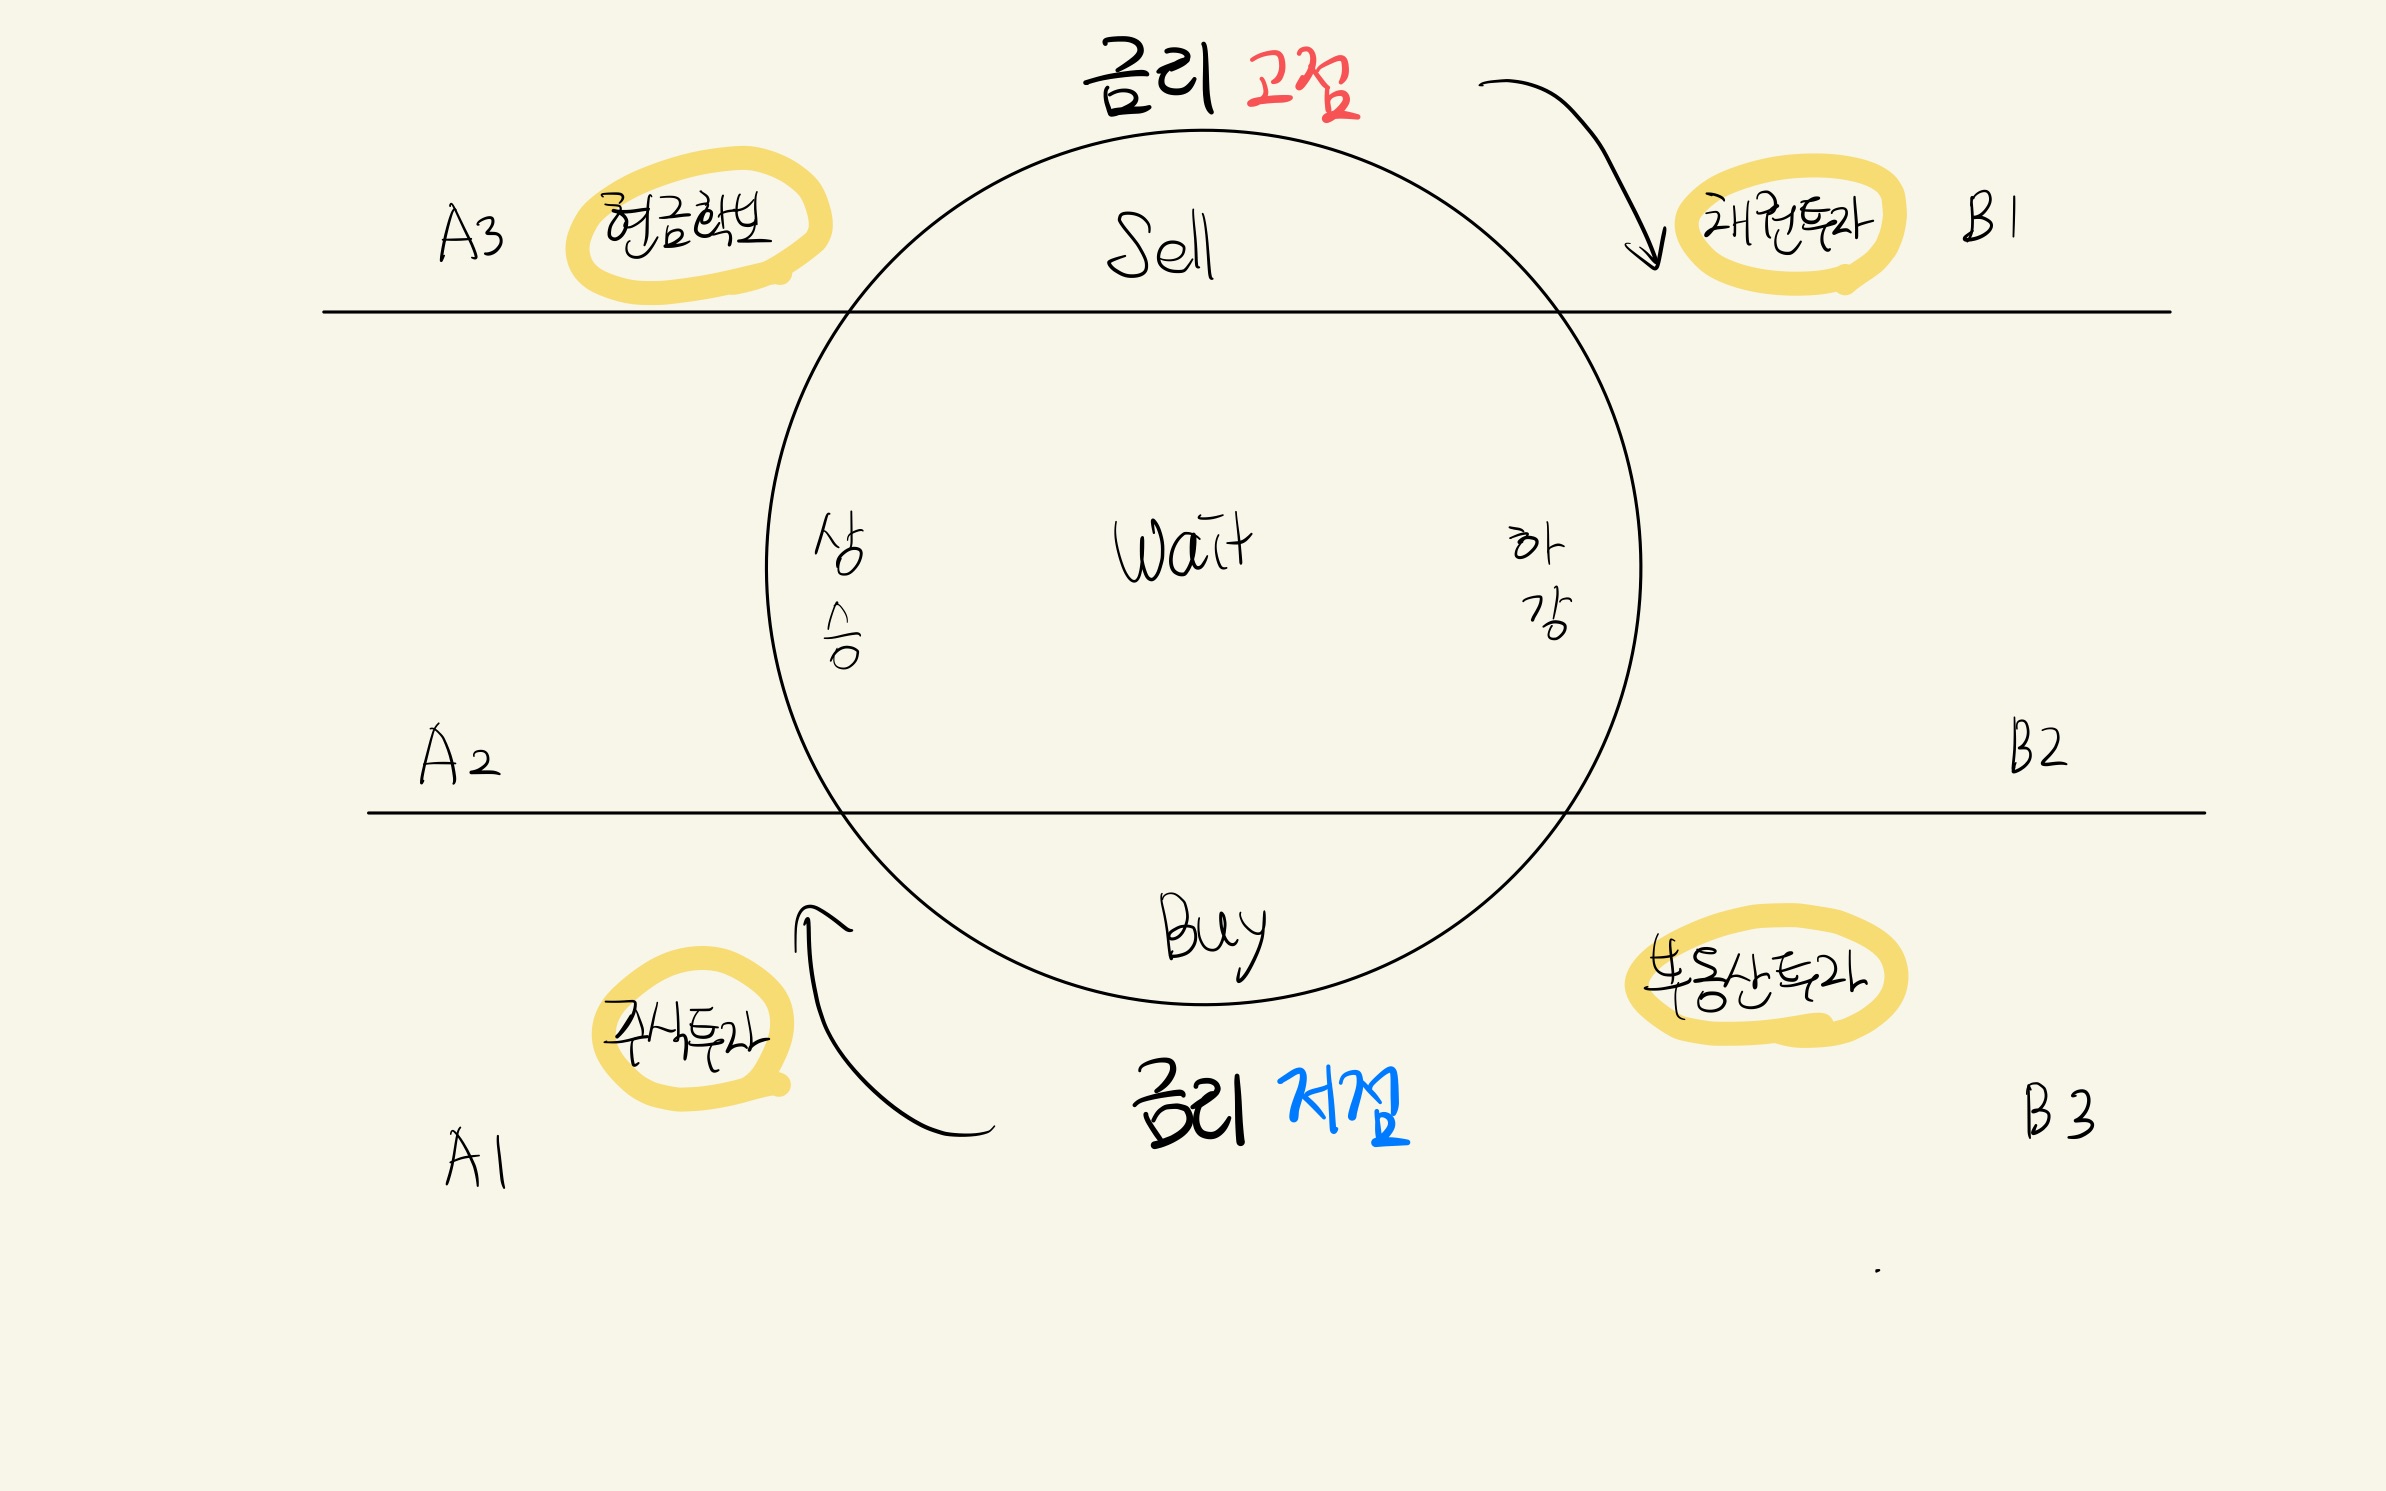 금리 고점
A3 현금확보
Sell
채권투자 B1
상승
Wait
하강
A2
B2
Buy
주식투자
부동산투자
금리 저점
A1
B3